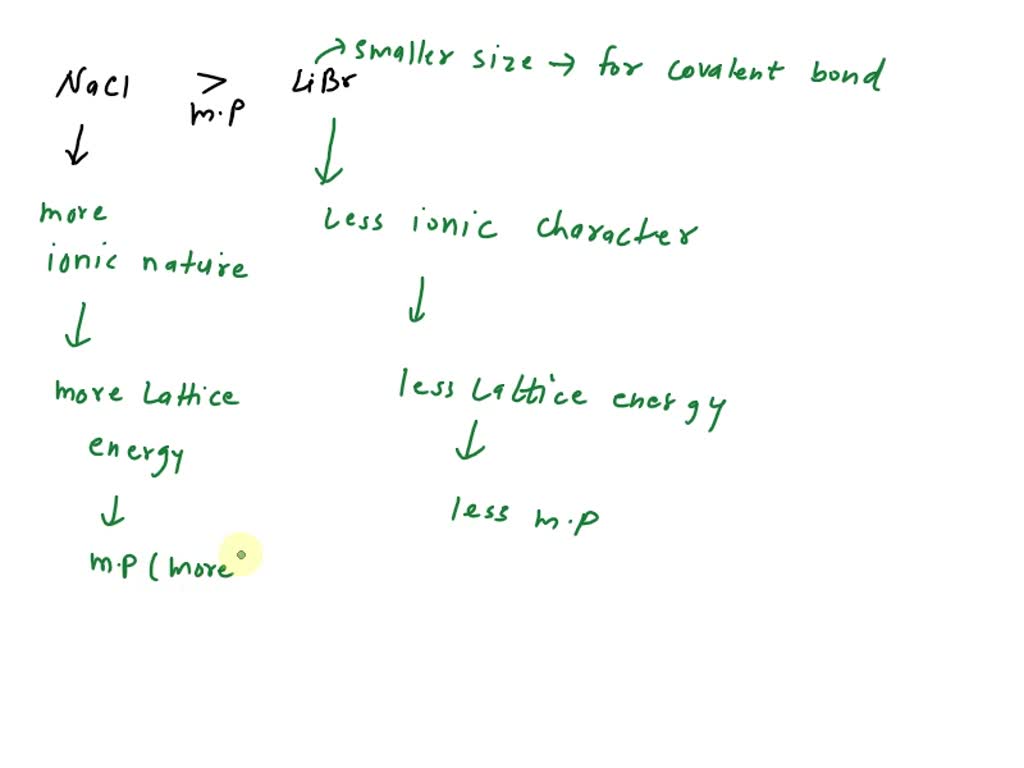 NaCl > LiBr → smaller size → for covalent bond
m.p
↓ ↓
more
ionic nature
less ionic character
↓ ↓
more Lattice
energy
less Lattice energy
↓ ↓
m.p (more
less m.p